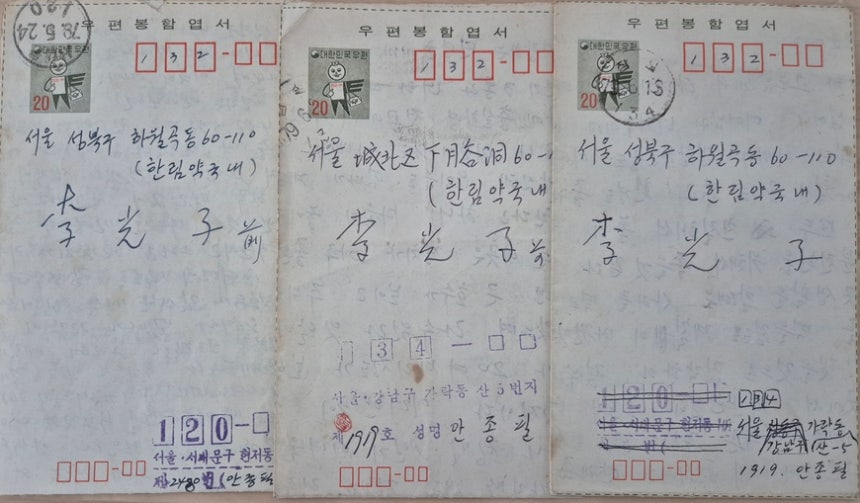 우편봉함엽서
79.5.24
대한민국우편
20
132-
서울 성북구 하월곡동 60-110
(한림약국내)
李光子 前
120-
서울·서대문구 현저동
제2480번 (안종필
우편봉함엽서
대한민국우편
20
132-
서울 城北区 下月谷洞 60-1
(한림약국내
李光子 前
134-
서울·강남구 가락동 산5번지
제1919호 성명 안종필
우편봉함엽서
대한민국우편
20
132-
서울 성북구 하월곡동 60-110
(한림약국내)
李光子
120-
134
서울·서대문구 현저동
서울 가락동
강남구 산-5
1919. 안종필